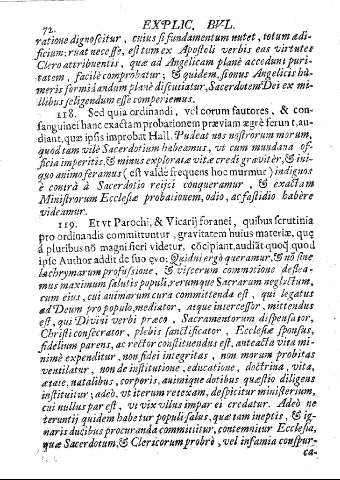 72. EXPLIC. BVL.
ratione dignoscitur, cuius si fundamentum nutet, totum ædi-
ficium; ruat necesse, est tum ex Apostoli verbis eas virtutes
Clero attribuentis, quæ ad Angelicam planè accedunt puri-
tatem, facilè comprobatur; & quidem, si onus Angelicis hu-
meris formidandum planè discutiatur, Sacerdotem Dei ex mi-
llibus seligendum esse comperiemus.
118. Sed quia ordinandi, vel eorum fautores, & con-
sanguinei hanc exactam probationem præviam ægrè ferunt, au-
diant, quæ ipsis improbat Hall. Pudeat nos nostrorum morum,
quod tam vilè Sacerdotium habeamus, vt cum mundana of-
ficia imperitis, & minus exploratæ vitæ credi graviter, & ini-
quo animo feramus (est valde frequens hoc murmur) indignos
è contrà à Sacerdotio reijci conqueramur, & exactam
Ministrorum Ecclesiæ probationem, odio, ac fastidio habère
videamur.
119. Et vt Parochi, & Vicarij foranei, quibus scrutinia
pro ordinandis committuntur, gravitatem huius materiæ, quę
à pluribus nō magni fieri videtur, cōcipiant, audiāt quoq́; quod
ipse Author addit de suo ęvo: Quidni ergò queramur, & nō sine
lachrymarum profusione, & viscerum commotione deflea-
mus maximum salutis populi, rerumque Sacrarum neglectum,
cum eius, cui animarum cura committenda est, qui legatus
ad Deum pro populo, mediator, atque intercessor, mittendus
est, qui Divini verbi præco, Sacramentorum dispensator,
Christi consecrator, plebis sanctificator, Ecclesiæ sponsus,
fidelium parens, ac rector constituendus est, anteacta vita mi-
nimè expenditur, non fidei integritas, non morum probitas
ventilatur, non de institutione, educatione, doctrina, vita,
ætate, natalibus, corporis, animique dotibus quæstio diligens
instituitur; adeò, vt iterum retexam, despicitur ministerium,
cui nullus par est, vt vix vllus impar ei credatur. Adeò ne
teruntij quidem habetur populi salus, quæ tam ineptis, & ig-
naris ducibus procuranda committitur, contemnitur Ecclesia,
quæ Sacerdotum, & Clericorum probrò, vel infamia conspur-
ca-